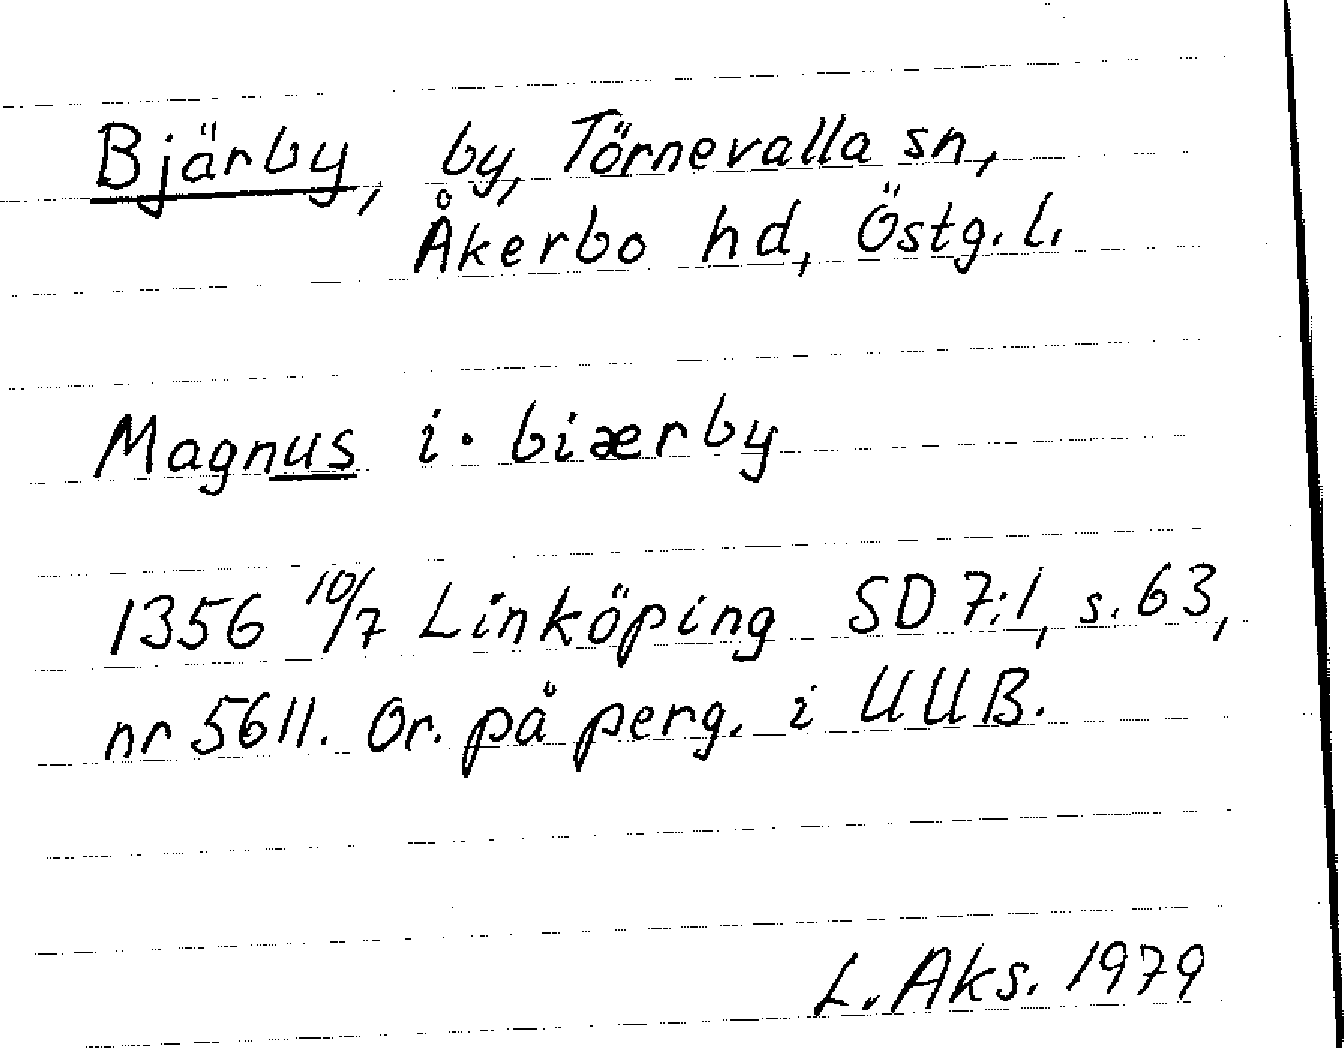 Bjärby, by, Törnevalla sn,
Åkerbo hd, Östg. l.
Magnus i · biærby
1356 10/7 Linköping SD 7:1, s. 63,
nr 5611. Or. på perg. i UUB.
L. Aks. 1979